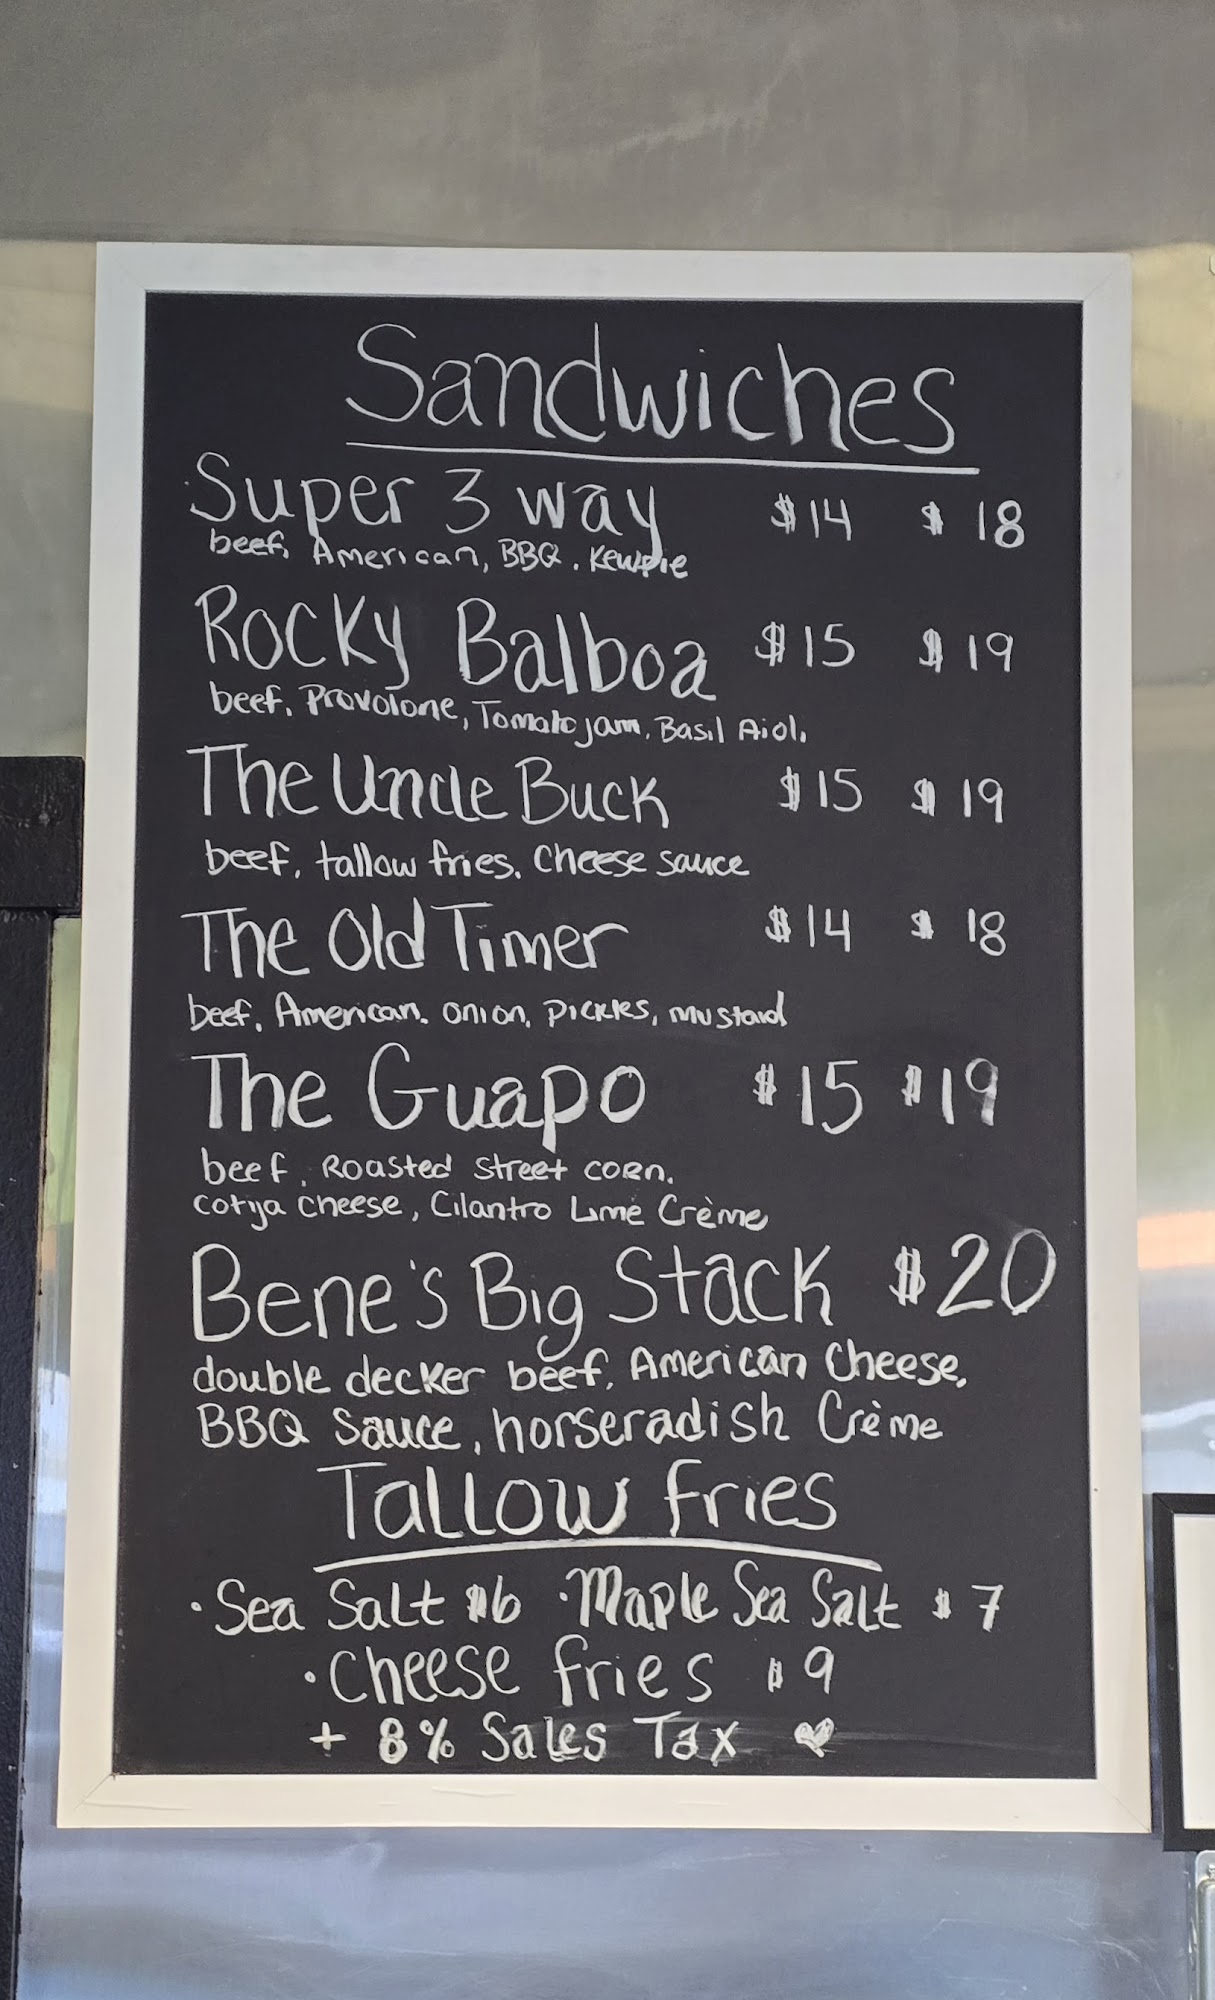 Sandwiches
Super 3 way $14 $18
beef, American, BBQ, Kewpie
Rocky Balboa $15 $19
beef, Provolone, Tomato jam, Basil Aioli
The Uncle Buck $15 $19
beef, tallow fries, cheese sauce
The Old Timer $14 $18
beef, American, onion, pickles, mustard
The Guapo $15 $19
beef, Roasted Street corn,
cotija cheese, Cilantro Lime Crème
Bene's Big Stack $20
double decker beef, American Cheese,
BBQ Sauce, horseradish Crème
Tallow fries
·Sea Salt $6 ·Maple Sea Salt $7
·Cheese fries $9
+ 8% Sales Tax ♥